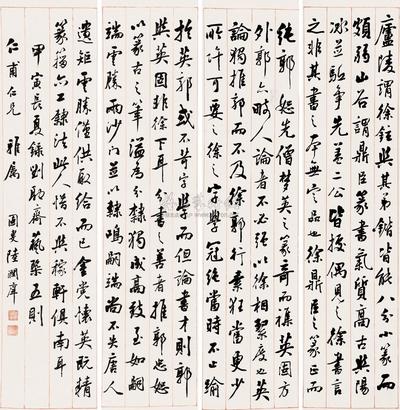 廬陵謂徐鉉與其弟鍇皆能八分小篆
頗弱山谷謂鼎臣篆書氣質高古與陽
冰並驅爭先蓋二公皆據偶見之徐書言
之非其書之本無定品也徐鼎臣之篆正而
純郭恕先僧夢英之篆奇而雜英固方
外郭亦畸人論者不必強以徐相絜度也英
獨推郭而不及徐郭行素狂當更少
所許可要之徐之字學冠絕當時不止踰
於英郭或不苛字學但論書才則郭
與英固非徐下耳書之善者推郭忠
以篆古之筆溢為分隸獨成高致至如嗣
端雲勝兩沙門並以隸鳴嗣端尚不失唐人
遺矩雲勝僅供取給而已金黨懷英既精
篆籀亦工隸法此人惜不與稼軒俱南耳
甲寅長夏錄劉融齋藝槩五則
仁甫仁兄 雅屬 固叟陸潤庠